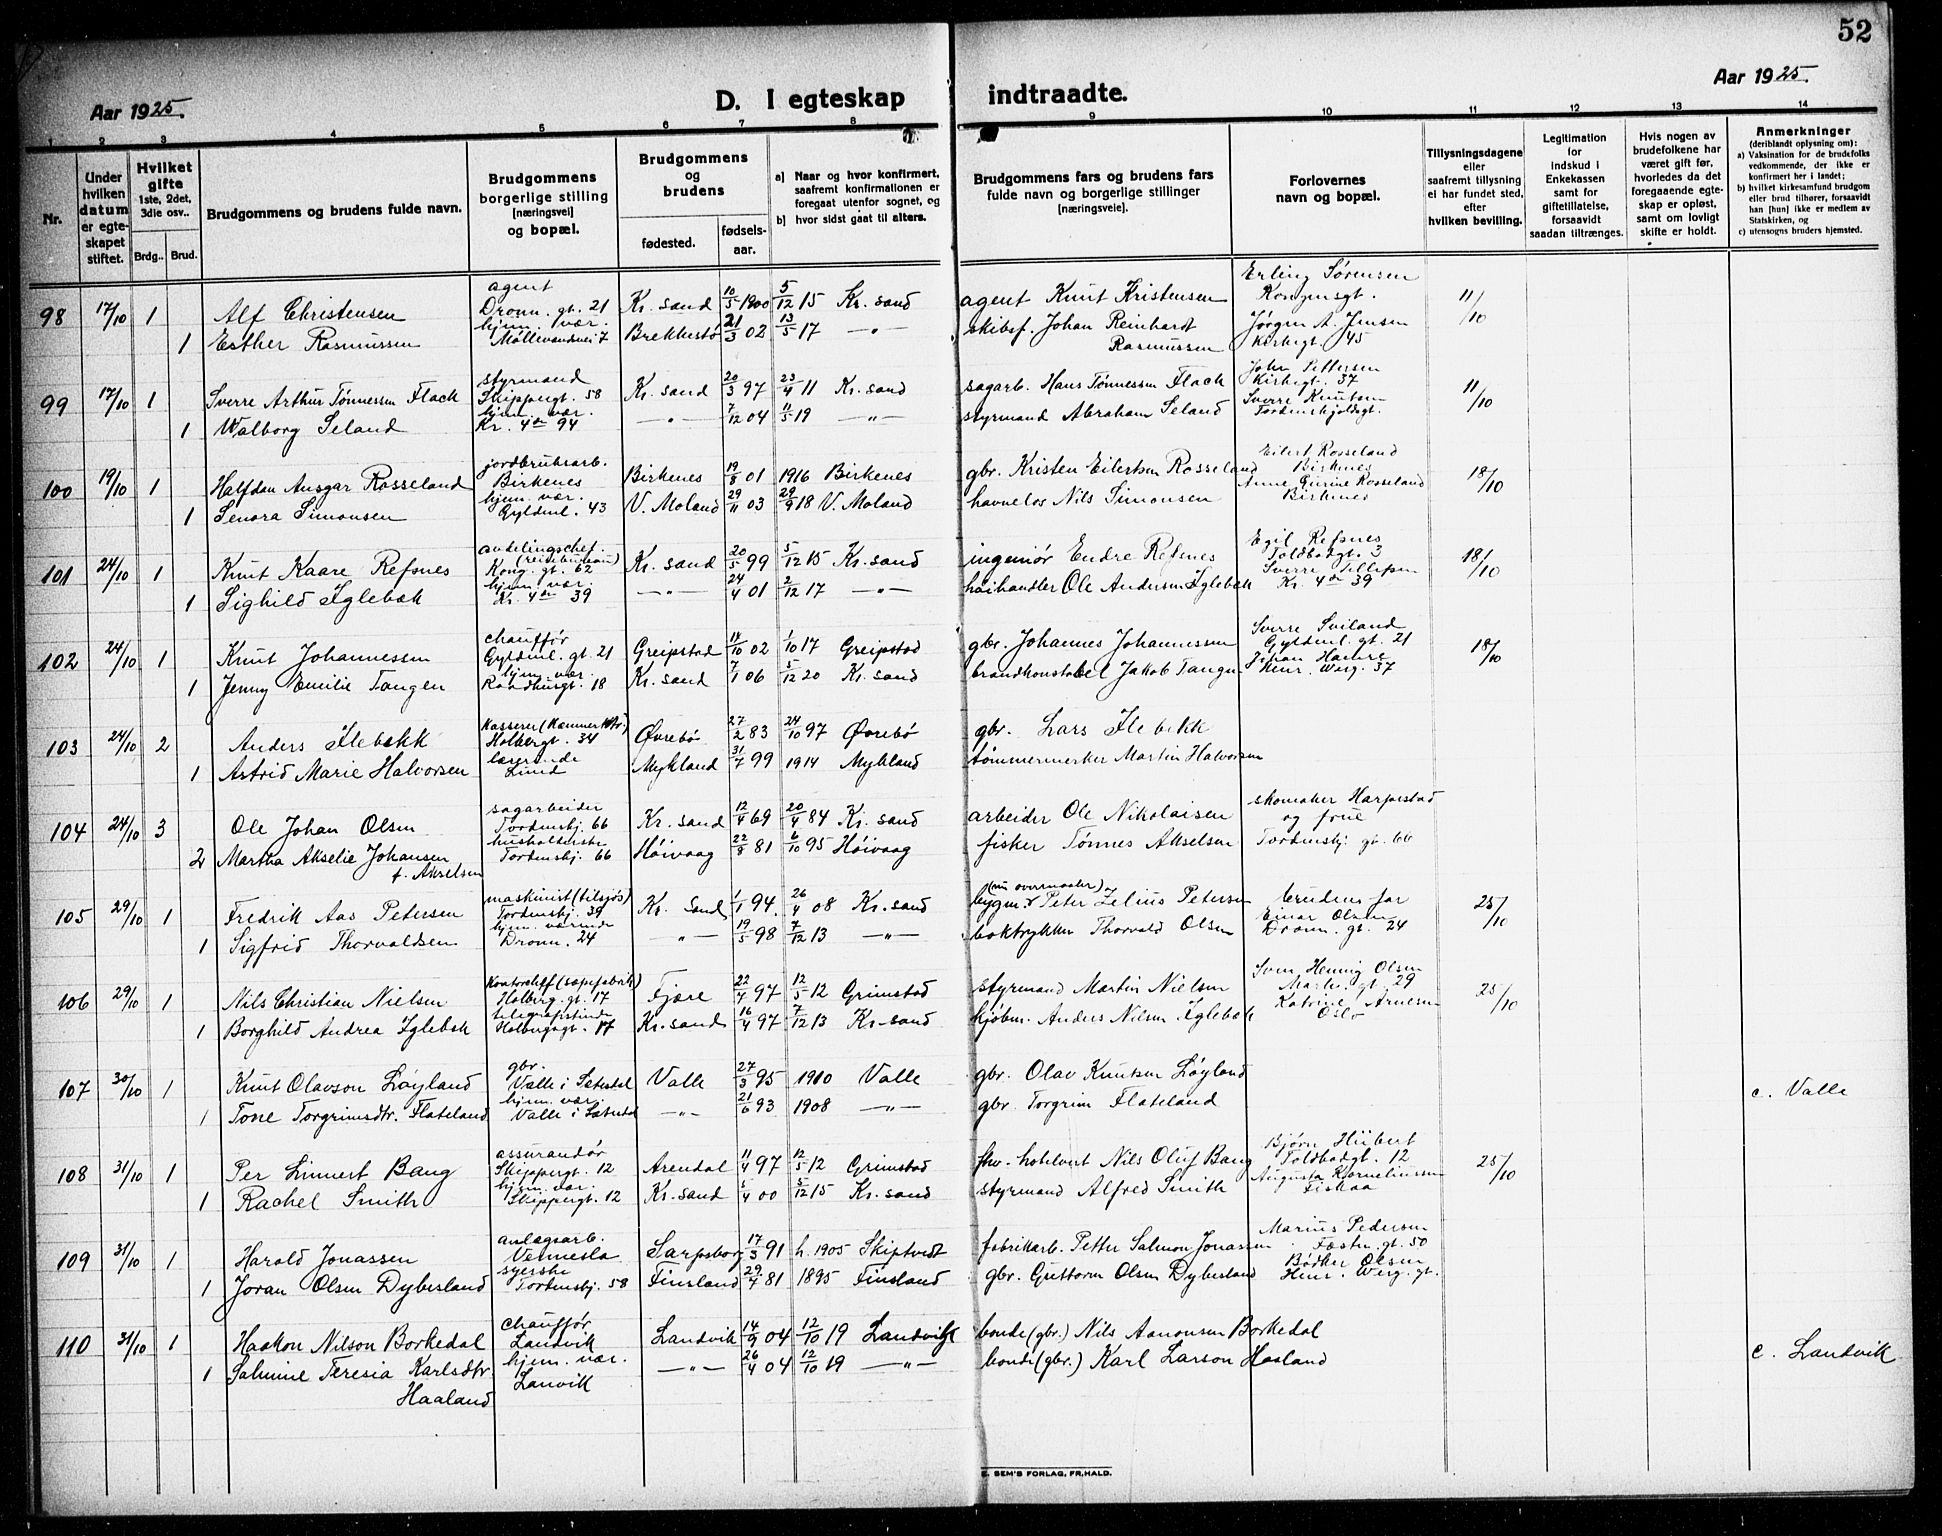 52
Aar 1925.
D. I egteskap indtraadte.
Aar 1925.
1 2 3 4 5 6 7 8 9 10 11 12 13 14
Nr.
Under hvilken datum er egteskapet stiftet.
Hvilket gifte 1ste, 2det, 3die osv..
Brdg.. Brud.
Brudgommens og brudens fulde navn.
Brudgommens borgerlige stilling [næringsvei] og bopæl.
Brudgommens og brudens
fødested. fødsels-aar.
a) Naar og hvor konfirmert, saafremt konfirmationen er foregaat utenfor sognet, og
b) hvor sidst gaat til alters.
Brudgommens fars og brudens fars fulde navn og borgerlige stillinger [næringsveie].
Forlovernes navn og bopæl.
Tillysningsdagene eller saafremt tillysning ei har fundet sted, efter hvilken bevilling.
Legitimation for indskud i Enkekassen samt for giftetillatelse, forsaavidt saadan tiltrænges.
Hvis nogen av brudefolkene har været gift før, hvorledes da det foregaaende egteskap er opløst, samt om lovligt skifte er holdt.
Anmerkninger (deriblandt oplysning om):
a) Vaksination for de brudefolks vedkommende, der ikke er konfirmert her i landet;
b) hvilket kirkesamfund brudgom eller brud tilhører, forsaavidt han [hun] ikke er medlem av Statskirken, og
c) utensogns bruders hjemsted.
98 17/10 1 Alf Christensen agent Dronn. gt. 21 Kr. sand 10/5 1900 5/12 15 Kr. sand agent Knut Kristensen Erling Sørensen Kongensgt. 11/10
1 Esther Rasmussen hjem. vær. Møllevandsvei 7 Brekkestø 21/3 02 13/5 17 —"— skibsf. Johan Reinhardt Rasmussen Jørgen A. Jensen Kirkegt. 45
99 17/10 1 Sverre Arthur Tønnessen Flack styrmand Skippergt. 58 Kr. sand 20/3 97 23/4 11 Kr. sand sagarb. Hans Tønnessen Flack John Pettersen Kirkegt. 37 11/10
1 Walborg Seland hjem. vær. Kr. 4de 94 —"— 7/12 04 11/5 19 —"— styrmand Abraham Seland Sverre Knutsen Tordenskjoldsgt.
100 19/10 1 Halfdan Ansgar Rosseland jordbruksarb. Birkenes Birkenes 19/8 01 1916 Birkenes gbr. Kristen Eilertsen Rosseland Eilert Rosseland Birkenes 18/10
1 Senora Simonsen hjem. vær. Gyldenl. 43 V. Moland 29/11 03 29/9 18 V. Moland havnelos Nils Simonsen Anne Gurine Rosseland Birkenes
101 24/10 1 Knut Kaare Refsnes avdelingschef Kong. gt. 62 Kr. sand 20/5 99 5/12 15 Kr. sand ingeniør Endre Refsnes Egil Refsnes Toldbodgt. 3 18/10
1 Sighild Iglebæk hjem. vær. Kr. 4de 39 —"— 24/4 01 2/12 17 —"— høihandler Ole Andersen Iglebæk Sverre Kr. 4de 39
102 24/10 1 Knut Johannessen chauffør Gyldenl. gt. 21 Greipstad 14/10 02 1/10 17 Greipstad gbr. Johannes Johannessen Sverre Sviland Gyldenl. gt. 21 18/10
1 Jenny Emilie Tangen hjem. vær. Raadhusgt. 18 Kr. sand 7/1 06 5/12 20 Kr. sand brandkonstabel Jakob Tangen Johan Henr. Werg. 37
103 24/10 2 Anders Ilebekk kasserer Holbergt. 34 Øvrebø 27/2 83 24/10 97 Øvrebø gbr. Lars Ilebekk
1 Astrid Marie Halvorsen lærerinde Lund Mykland 31/7 99 1914 Mykland tømmermerker Martin Halvorsen
104 24/10 3 Ole Johan Olsen sagarbeider Tordenskj. 66 Kr. sand 12/4 69 20/4 84 Kr. sand arbeider Ole Nikolaisen skomaker Harperstad og frue
2 Martha Akselie Johansen f. Akselsen husholderske Tordenskj. 66 Høivaag 22/8 81 6/10 95 Høivaag fisker Tønnes Akselsen Tordenskj. gt. 66
105 29/10 1 Fredrik Aas Petersen maskinist (tilsjøs) Tordenskj. 39 Kr. Sand 1/1 94. 26/4 08 Kr. sand bygm. Peter Zelius Petersen brudens far 25/10
1 Sigfrid Thorvaldsen hjem. værende Dronn. 24 —"— 19/5 98 7/12 13 —"— boktrykker Thorvald Olsen Einar Olsen Dronn. gt. 24
106 29/10 1 Nils Christian Nielsen Holberg. gt. 17 Fjære 22/4 97 12/5 12 Grimstad styrmand Martin Nielsen Sven Hennig Olsen Mark. gt. 29 25/10
1 Borghild Andrea Iglebæk telegrafistinde Holbergsgt. 17 Kr. sand 16/4 97 7/12 13 Kr. sand kjøbm. Anders Nilsen Iglebæk Katrine Arnesen Oslo
107 30/10 1 Knut Olavson Løyland gbr. Valle i Setesdal Valle 27/3 95 1910 Valle gbr. Olav Knutsen Løyland c. Valle
1 Tone Torgrimsdtr. Flateland hjem. vær. Valle i Setesdal —"— 21/6 93 1908 —"— gbr. Torgrim Flateland
108 31/10 1 Per Linnert Bang assurandør Skippergt. 12 Arendal 11/4 97 12/5 12 Grimstad fhv. hotelvert Nils Oluf Bang Bjørn Hübert Toldbodgt. 12 25/10
1 Rachel Smith hjem. vær. Skippergt. 12 Kr. sand 5/4 00 5/12 15 Kr. sand styrmand Alfred Smith Augusta Korneliussen Fiskaa
109 31/10 1 Harald Jonassen anlægsarb. Vennesla Sarpsborg 17/3 91 h. 1905 Skiptvedt fabrikarb. Petter Salmon Jonassen Marius Pedersen Festn. gt. 50
1 Joran Olsen Dybesland syerske Tordenskj. 58 Finsland 29/4 81 1895 Finsland gbr. Guttorm Olsen Dybesland Bødker Olsen Henr. Werg. gt.
110 31/10 1 Haakon Nilson Borkedal chauffør Landvik Landvik 14/9 04 12/10 19 Landvik bonde (gbr.) Nils Aanonsen Borkedal c. Landvik
1 Salmine Teresia Karlsdtr. Haaland hjem. vær. Lanvik —"— 26/4 04 12/10 19 —"— bonde (gbr.) Karl Larson Haaland
E. SEM'S FORLAG, FR.HALD.